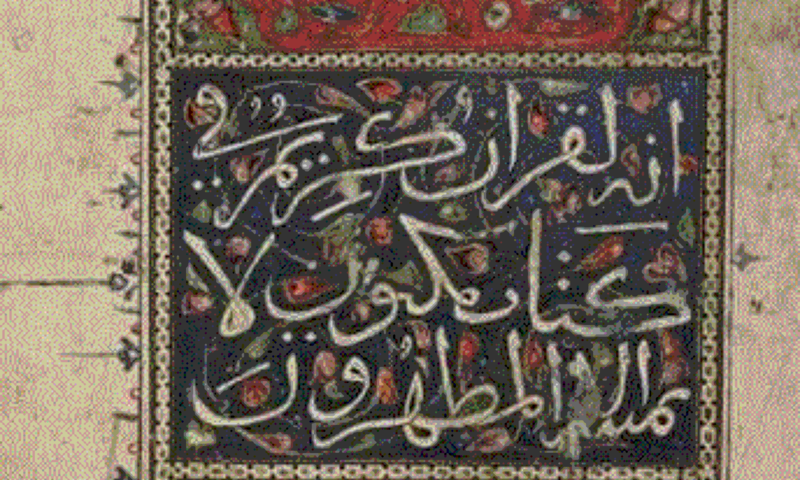 انه لقران كريم في
كتاب مكنون لا
يمسه الا المطهرون